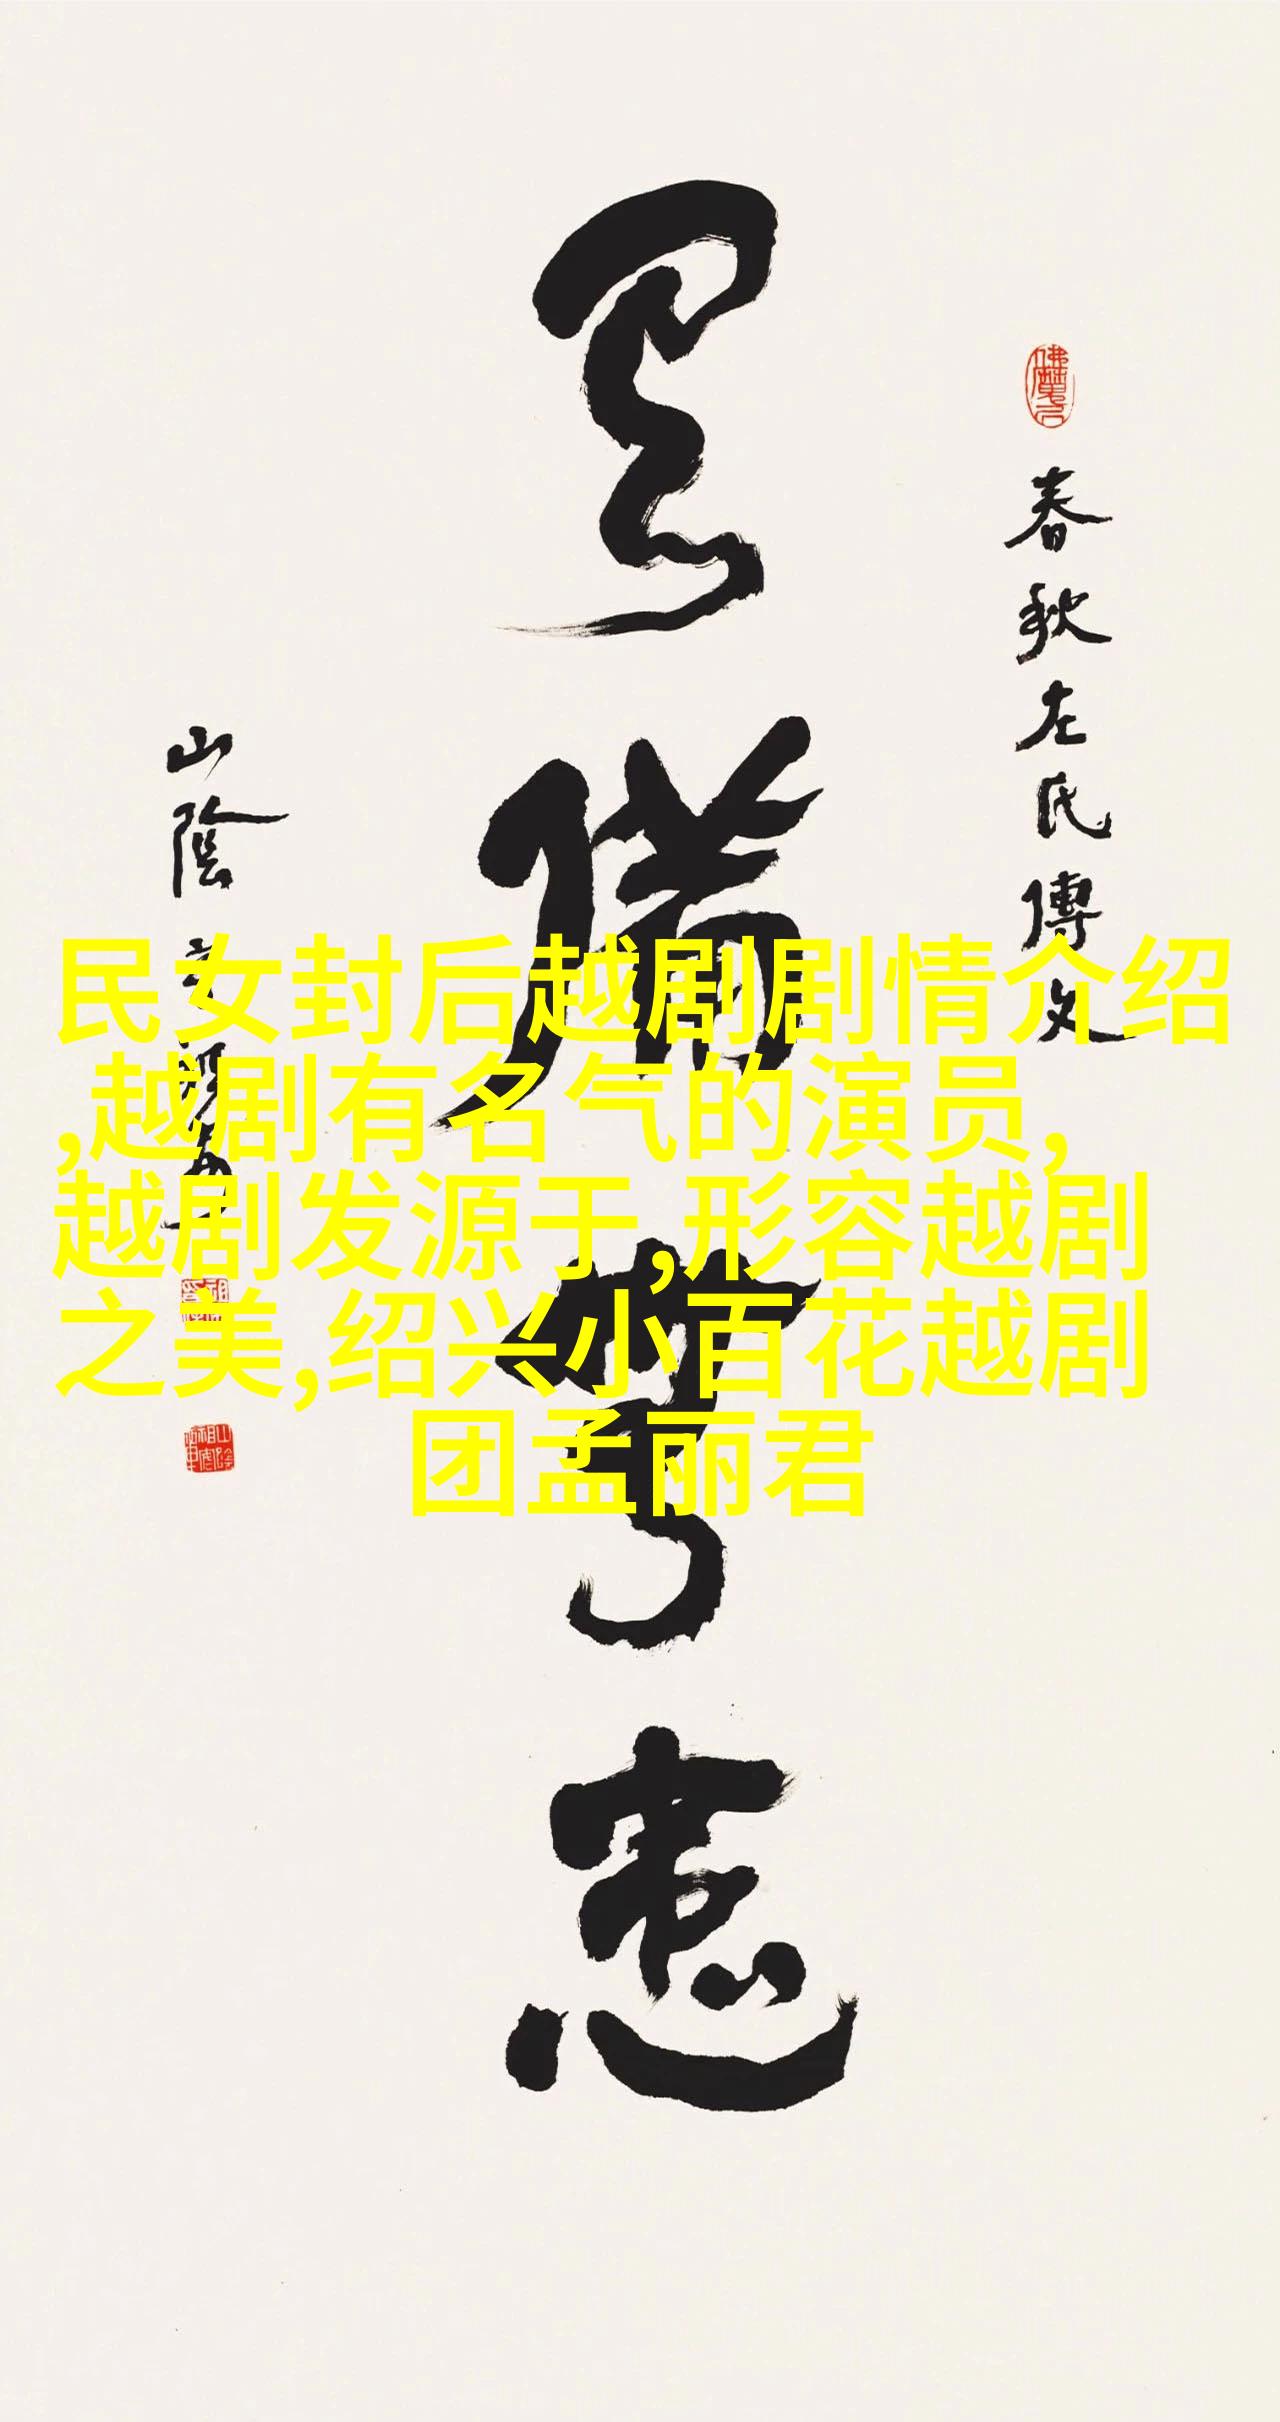 有備無患
春秋左氏傳文
山陰
民女封后越剧剧情介绍
,越剧有名气的演员,
越剧发源于,形容越剧
之美,绍兴小百花越剧
团孟丽君